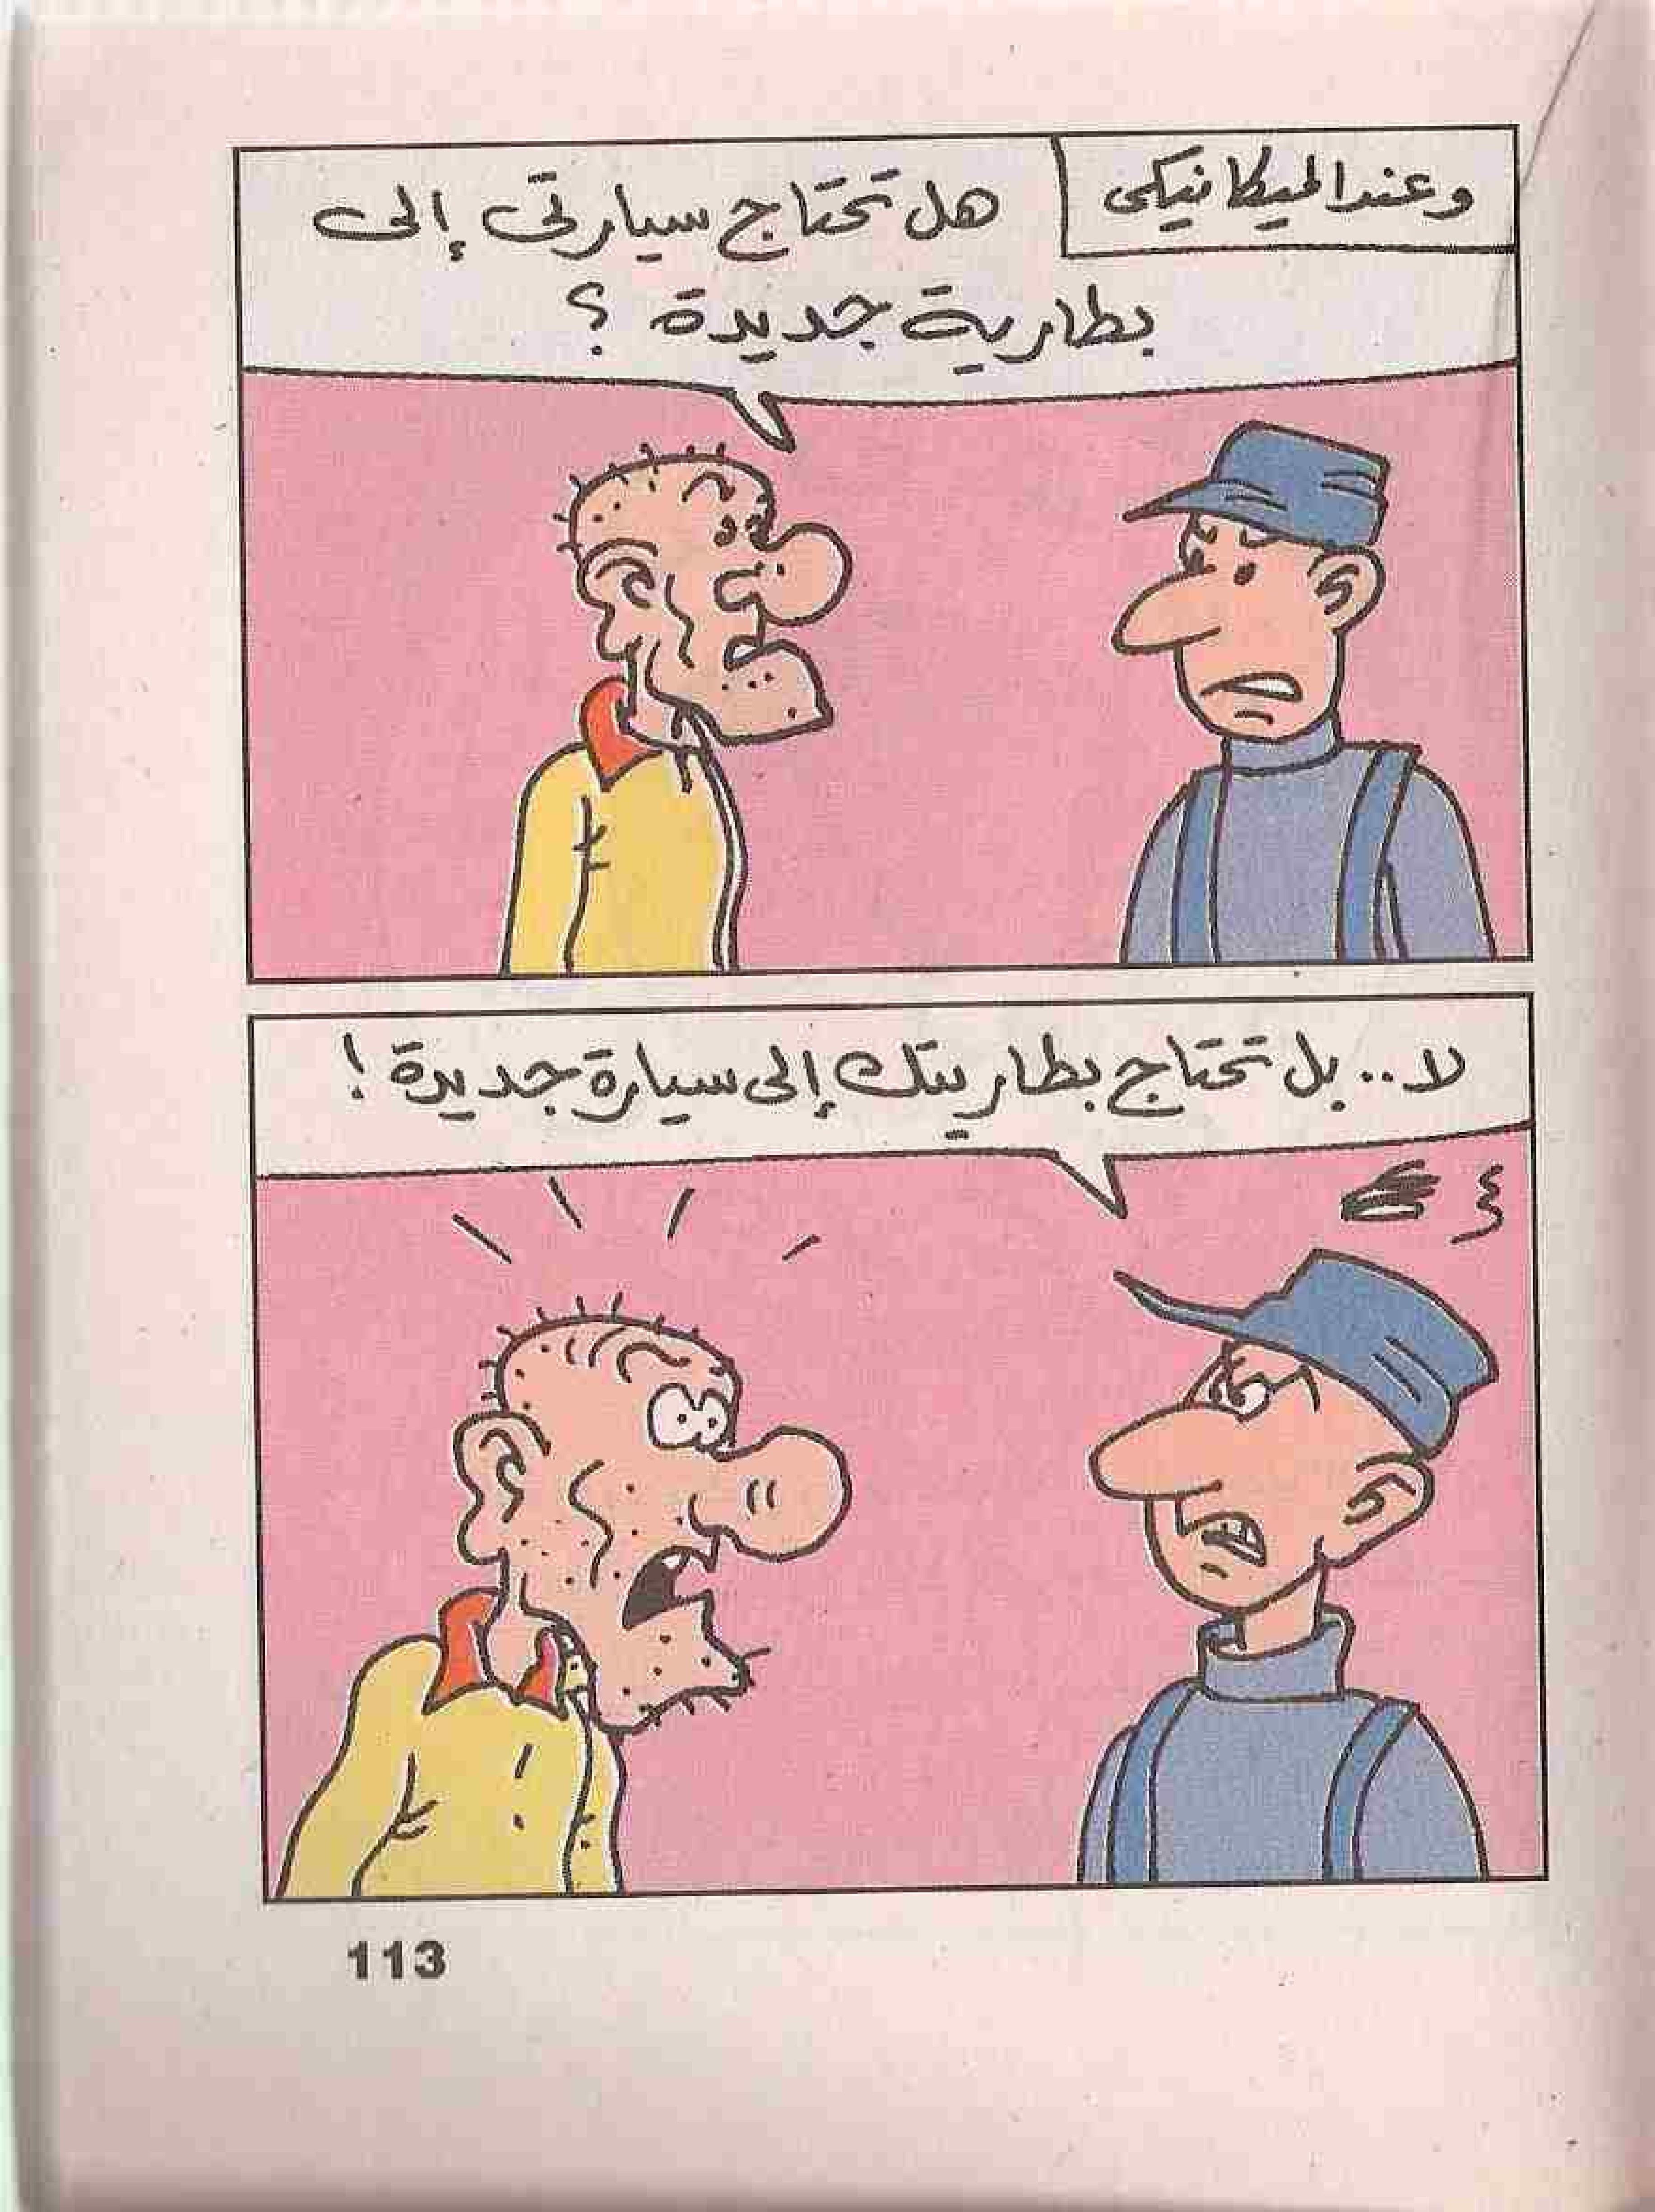 وعند الميكانيكى
هل تحتاج سيارتى إلى
بطارية جديدة ؟
لا .. بل تحتاج بطاريتك إلى سيارة جديدة !
113